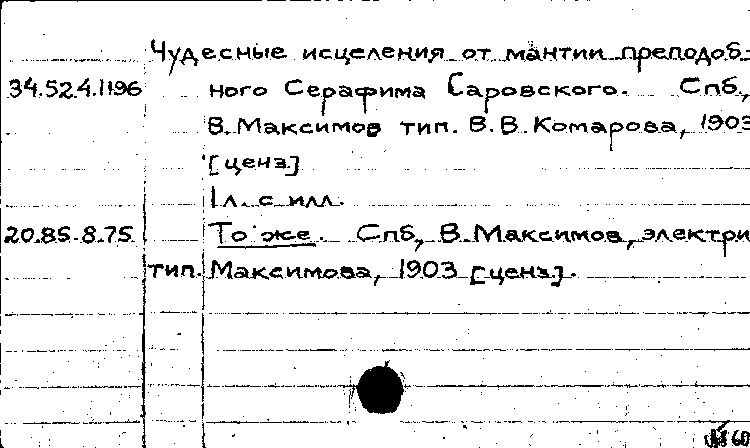 Чудесные исцеления от мантии преподоб-
34.52.4.1196 ного Серафима Саровского. Спб.,
В. Максимов тип. В. В. Комарова, 1903
[ценз]
1 л. с илл.
20.85.8.75 То же. Спб, В. Максимов, электри
тип. Максимова, 1903 [ценз].